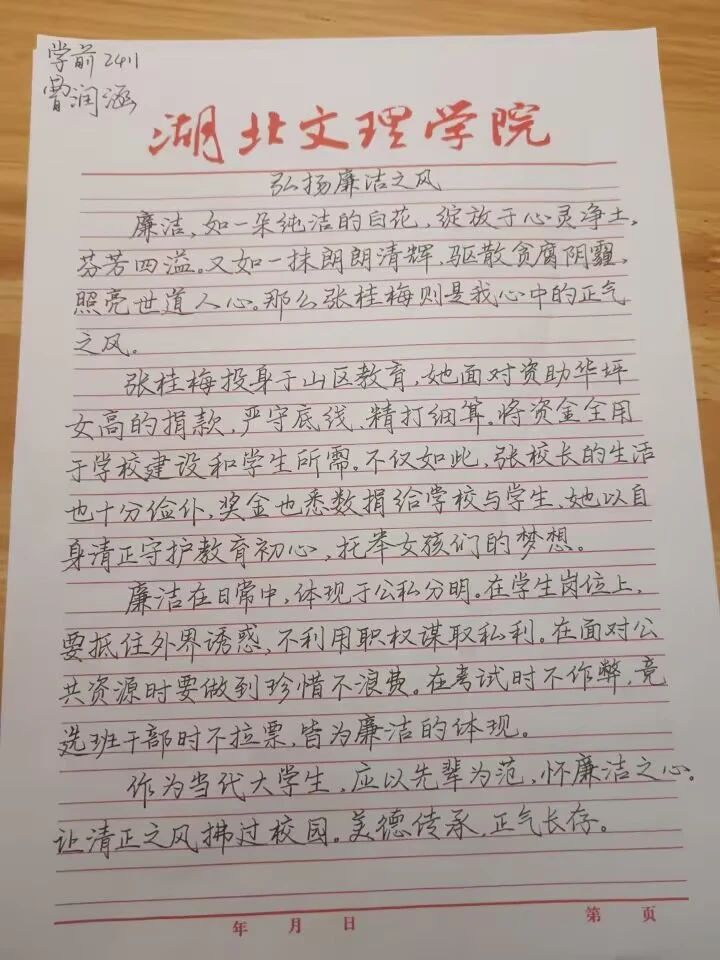 学前2411
曾润涵
湖北文理学院
弘扬廉洁之风
廉洁，如一朵纯洁的白花，绽放于心灵净土，
芬芳四溢。又如一抹朗朗清辉，驱散贪腐阴霾，
照亮世道人心。那么张桂梅则是我心中的正气
之风。
张桂梅投身于山区教育，她面对资助华坪
女高的捐款，严守底线、精打细算。将资金全用
于学校建设和学生所需。不仅如此，张校长的生活
也十分俭朴，奖金也悉数捐给学校与学生，她以自
身清正守护教育初心，托举女孩们的梦想。
廉洁在日常中，体现于公私分明。在学生岗位上，
要抵住外界诱惑，不利用职权谋取私利。在面对公
共资源时要做到珍惜不浪费。在考试时不作弊，竞
选班干部时不拉票，皆为廉洁的体现。
作为当代大学生，应以先辈为范，怀廉洁之心。
让清正之风拂过校园。美德传承，正气长存。
年 月 日 第 页